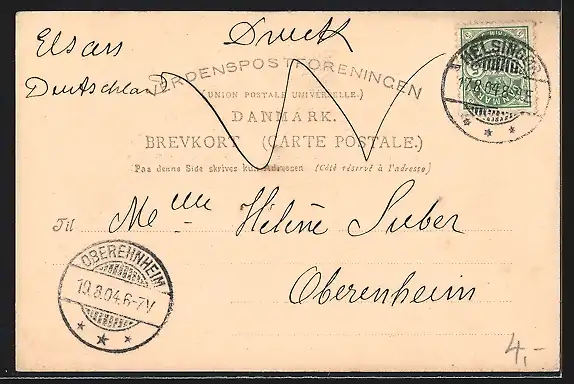 Elsass Druck
Deutschland
VERDENSPOSTFORENINGEN
(UNION POSTALE UNIVERSELLE.)
DANMARK.
BREVKORT (CARTE POSTALE.)
Paa denne Side skrives kun Adressen (Côté réservé à l'adresse)
HELSINGØR
DANMARK
Til Melle Hélène Suber
Oberenheim
OBEREHNHEIM
19.8.04.6-7V
4,-